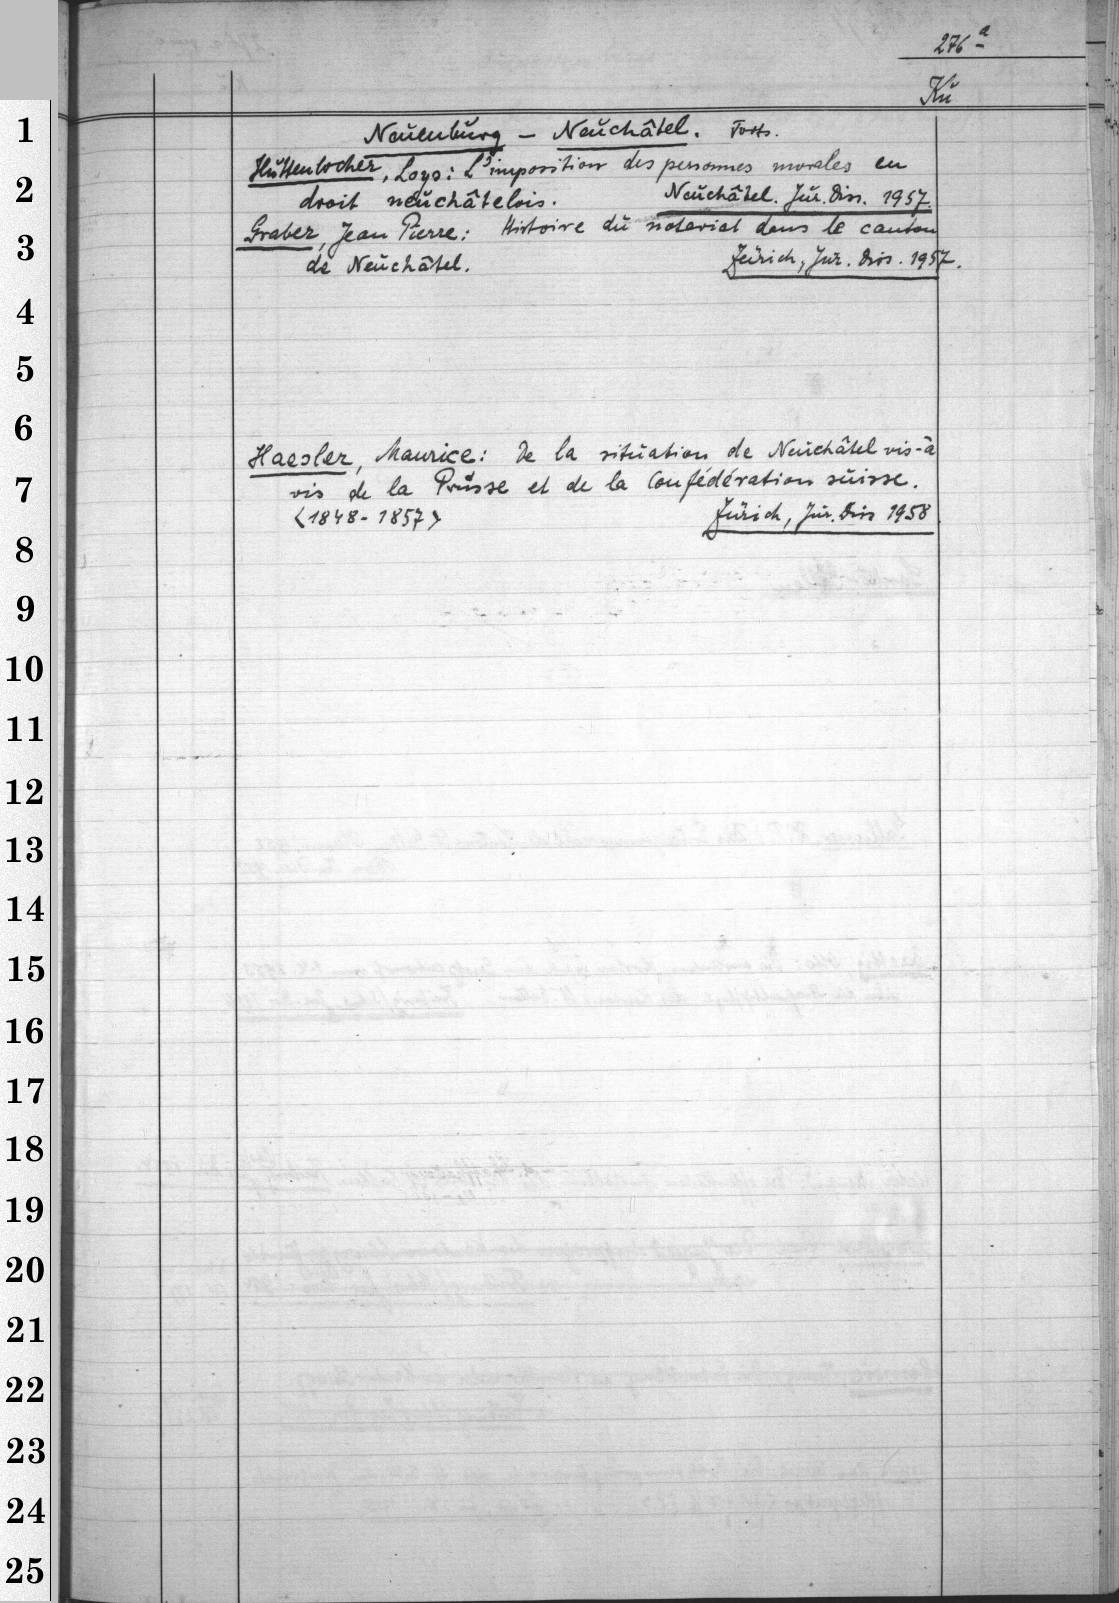 276 a
Kü
Neuenburg – Neuchâtel. Forts.
Huttenlocher, Loys: L'imposition des personnes morales en
droit neuchâtelois. Neuchâtel. Jur. Diss. 1957.
Graber, Jean Pierre: Histoire du notariat dans le canton
de Neuchâtel. Zürich, Jur. Diss. 1957.
Haesler, Maurice: De la situation de Neuchâtel vis-à
vis de la Prusse et de la Confédération suisse.
<1848-1857> Zürich, Jur. Diss 1958
1
2
3
4
5
6
7
8
9
10
11
12
13
14
15
16
17
18
19
20
21
22
23
24
25